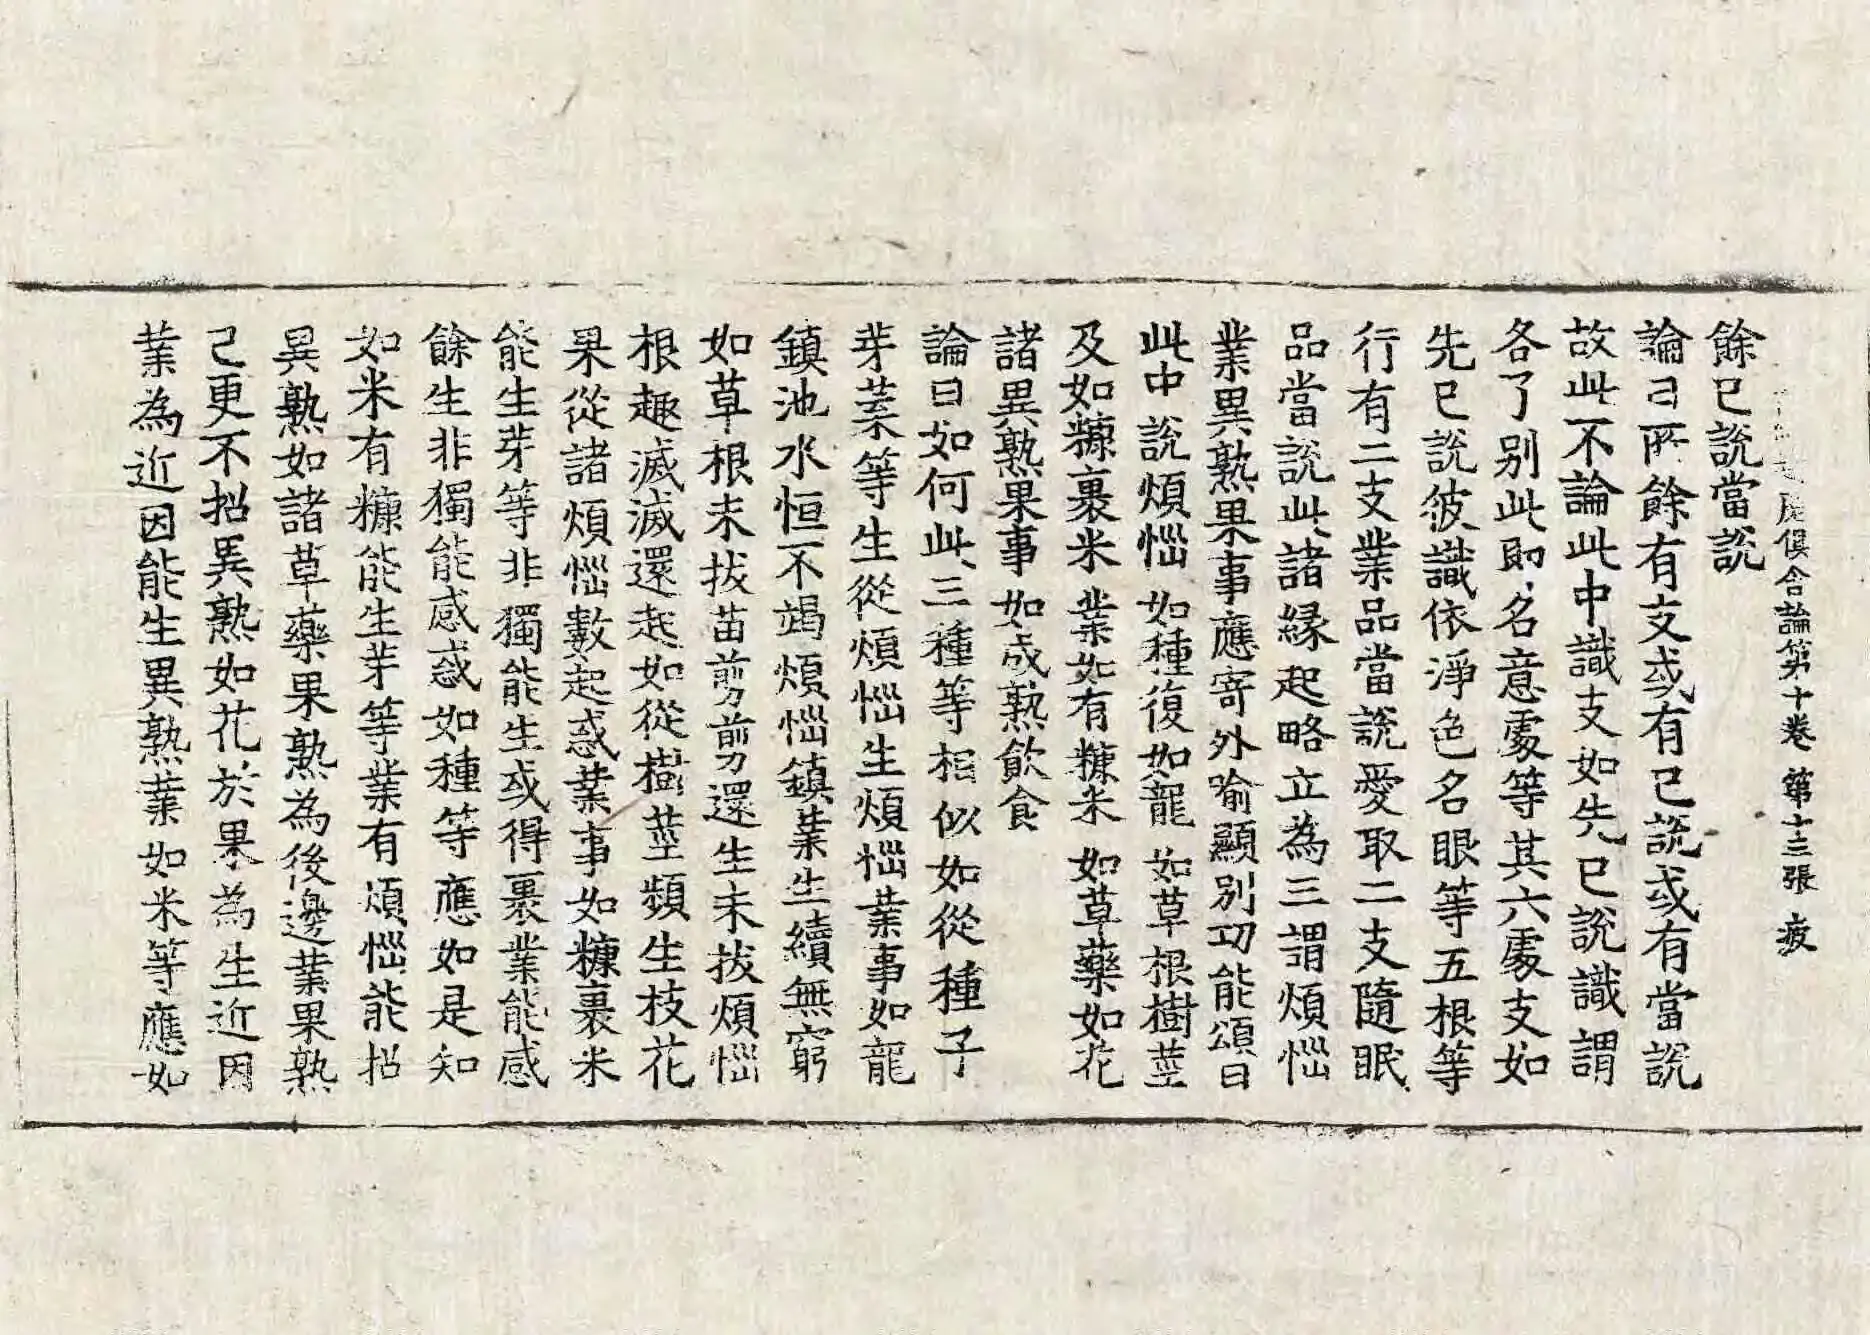 俱舍論第十卷 第十三張 疲
餘已說當說
論曰所餘有支或有已說或有當說
故此不論此中識支如先已說識謂
各了別此即名意處等其六處支如
先已說彼識依淨色名眼等五根等
行有二支業品當說愛取二支隨眠
品當說此諸緣起略立為三謂煩惱
業異熟果事應寄外喻顯別功能頌曰
此中說煩惱 如種復如龍 如草根樹莖
及如糠裹米 業如有糠米 如草藥如花
諸異熟果事 如成熟飲食
論曰如何此三種等相似如從種子
芽葉等生從煩惱生煩惱業事如龍
鎮池水恒不竭煩惱鎮業生續無窮
如草根未拔苗剪剪還生未拔煩惱
根趣滅滅還起如從樹莖頻生枝花
果從諸煩惱數起惑業事如糠裹米
能生芽等非獨能生或得裹業能感
餘生非獨能感惑如種等應如是知
如米有糠能生芽等業有煩惱能招
異熟如諸草藥果熟為後邊業果熟
已更不招異熟如花於果為生近因
業為近因能生異熟業如米等應如